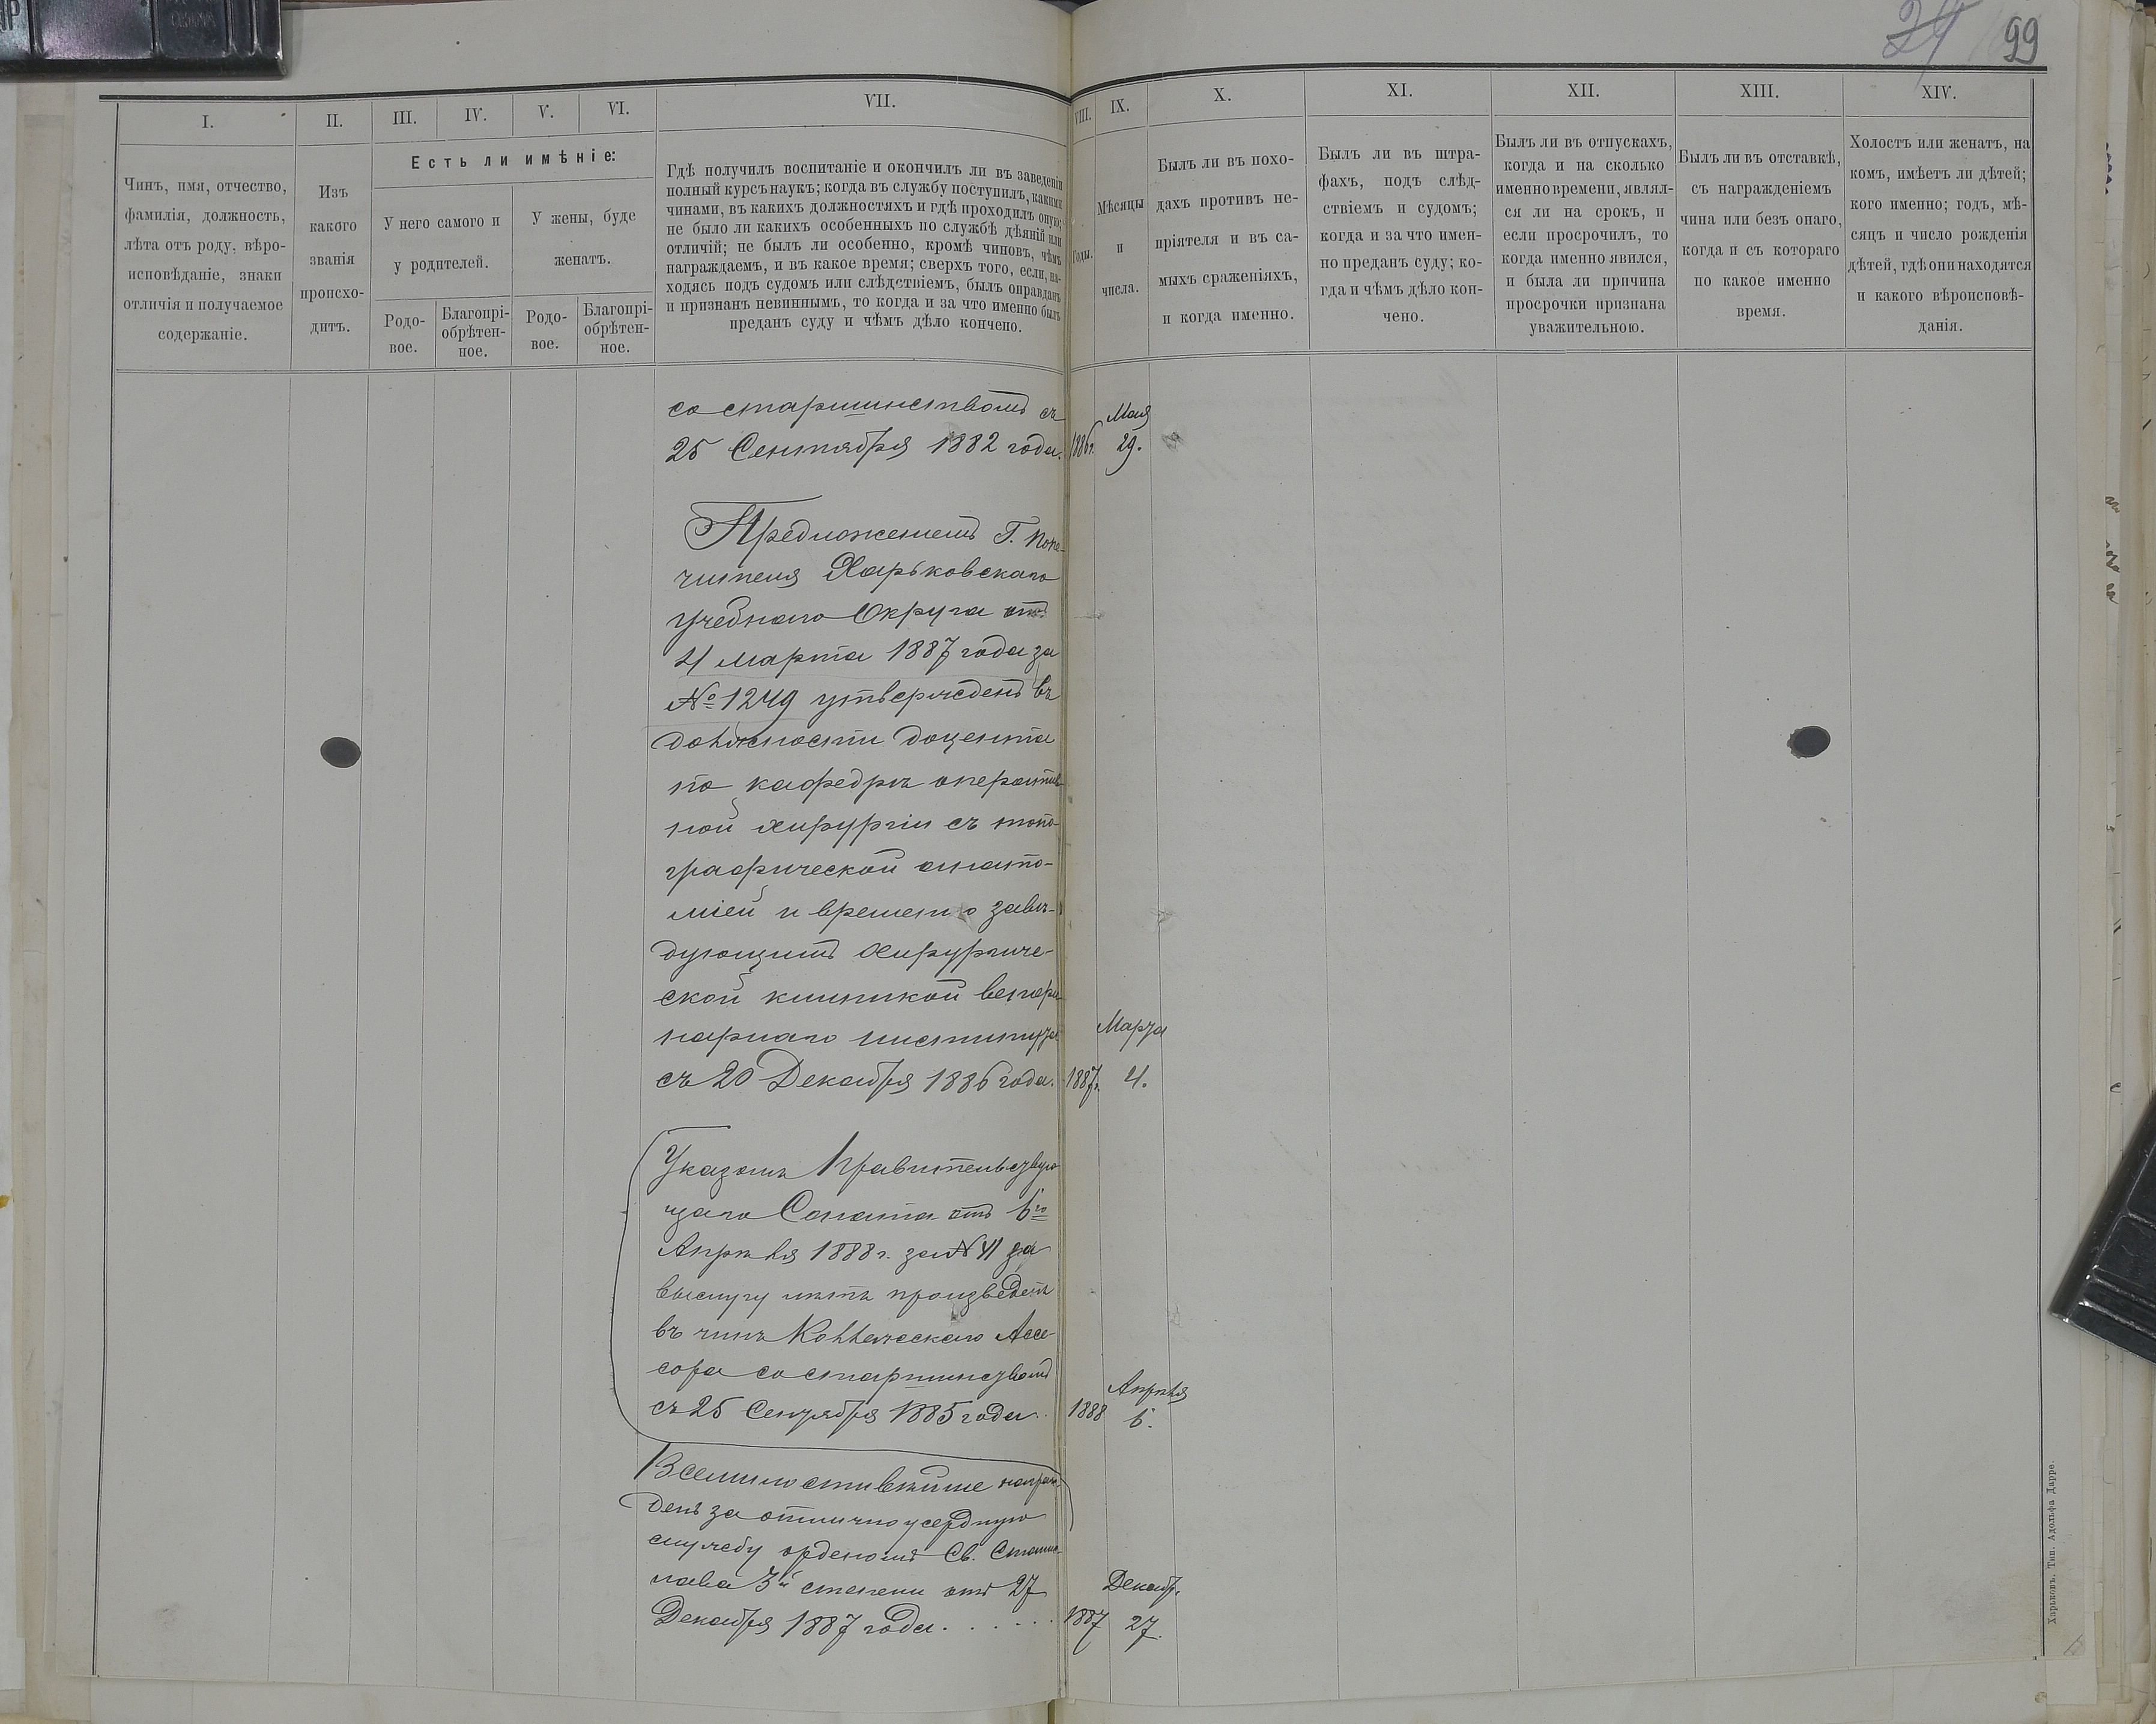 24 99
I.
II.
III.
IV.
V.
VI.
VII.
VIII.
IX.
X.
XI.
XII.
XIII.
XIV.
Чинъ, имя, отчество,
фамилія, должность,
лѣта отъ роду, вѣро-
исповѣданіе, знаки
отличія и получаемое
содержаніе.
Изъ
какого
званія
происхо-
дитъ.
Есть ли имѣніе:
У него самого и
у родителей.
У жены, буде
женатъ.
Родо-
вое.
Благопрі-
обрѣтен-
ное.
Родо-
вое.
Благопрі-
обрѣтен-
ное.
Гдѣ получилъ воспитаніе и окончилъ ли въ заведеніи
полный курсъ наукъ; когда въ службу поступилъ, какими
чинами, въ какихъ должностяхъ и гдѣ проходилъ оную;
не было ли какихъ особенныхъ по службѣ дѣяній или
отличій; не былъ ли особенно, кромѣ чиновъ, чѣмъ
награждаемъ, и въ какое время; сверхъ того, если, на-
ходясь подъ судомъ или слѣдствіемъ, былъ оправданъ
и признанъ невиннымъ, то когда и за что именно былъ
преданъ суду и чѣмъ дѣло кончено.
Годы.
Мѣсяцы
и
числа.
Былъ ли въ похо-
дахъ противъ не-
пріятеля и въ са-
мыхъ сраженіяхъ,
и когда именно.
Былъ ли въ штра-
фахъ, подъ слѣд-
ствіемъ и судомъ;
когда и за что имен-
но преданъ суду; ко-
гда и чѣмъ дѣло кон-
чено.
Былъ ли въ отпускахъ,
когда и на сколько
именно времени, являл-
ся ли на срокъ, и
если просрочилъ, то
когда именно явился,
и была ли причина
просрочки признана
уважительною.
Былъ ли въ отставкѣ,
съ награжденіемъ
чина или безъ онаго,
когда и съ котораго
по какое именно
время.
Холостъ или женатъ, на
комъ, имѣетъ ли дѣтей;
кого именно; годъ, мѣ-
сяцъ и число рожденія
дѣтей, гдѣ они находятся
и какого вѣроисповѣ-
данія.
со старшинствомъ съ
25 Сентября 1882 года.
1886 г.
Мая
29.
Предложеніемъ Г. Попе-
чителя Харьковскаго
Учебнаго Округа отъ
4 марта 1887 года за
№ 1249 утвержденъ въ
должности доцента
по кафедрѣ оператив
ной хирургіи съ топо-
графической анато-
міей и временно завѣ-
дующимъ хирургиче-
ской клиникой ветери
нарнаго института
съ 20 Декабря 1886 года.
1887 г.
Марта
4.
Указомъ Правительствую
щаго Сената отъ 6го
Апрѣля 1888 г. за № 41 за
выслугу лѣтъ произведенъ
въ чинъ Коллежскаго Ассе-
сора со старшинствомъ
съ 25 Сентября 1885 года.
1888
Апрѣля
6.
Всемилостивѣйше награж
денъ за отлично усердную
службу орденомъ Св. Станис-
лава 3й степени отъ 27
Декабря 1887 года. . . . . .
1887
Декабр.
27.
Харьковъ. Тип. Адольфа Дарре.